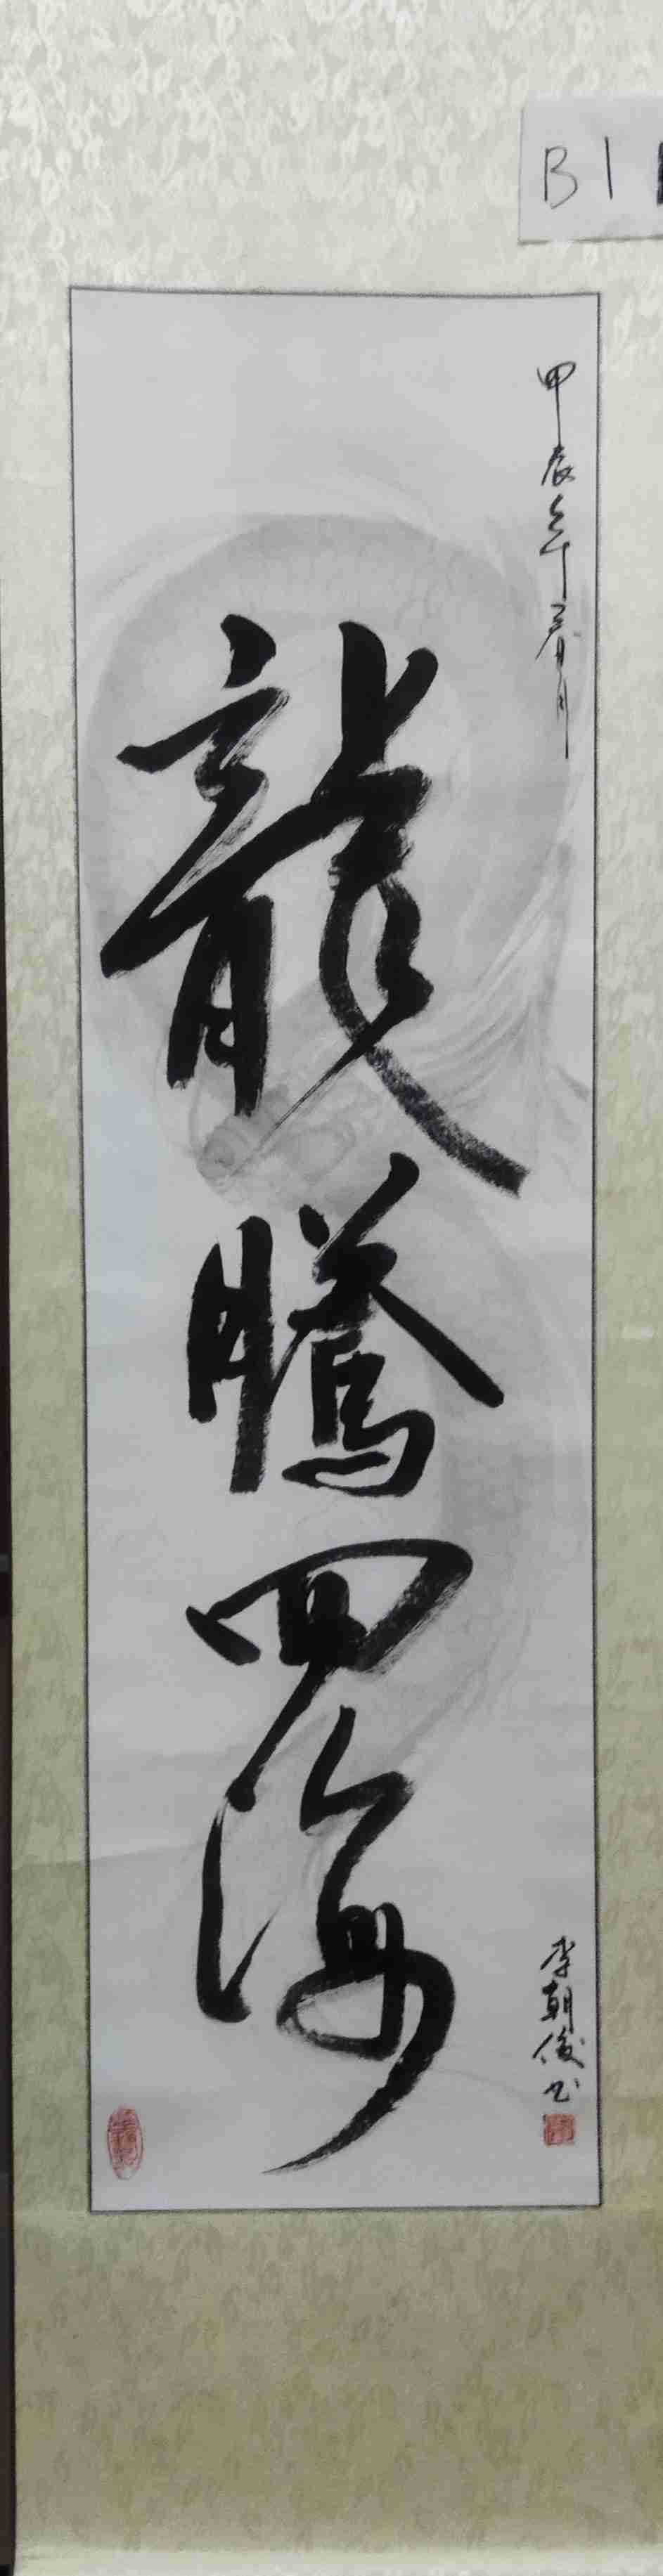 B1
甲辰年春月
龍騰四海
李朝俊书